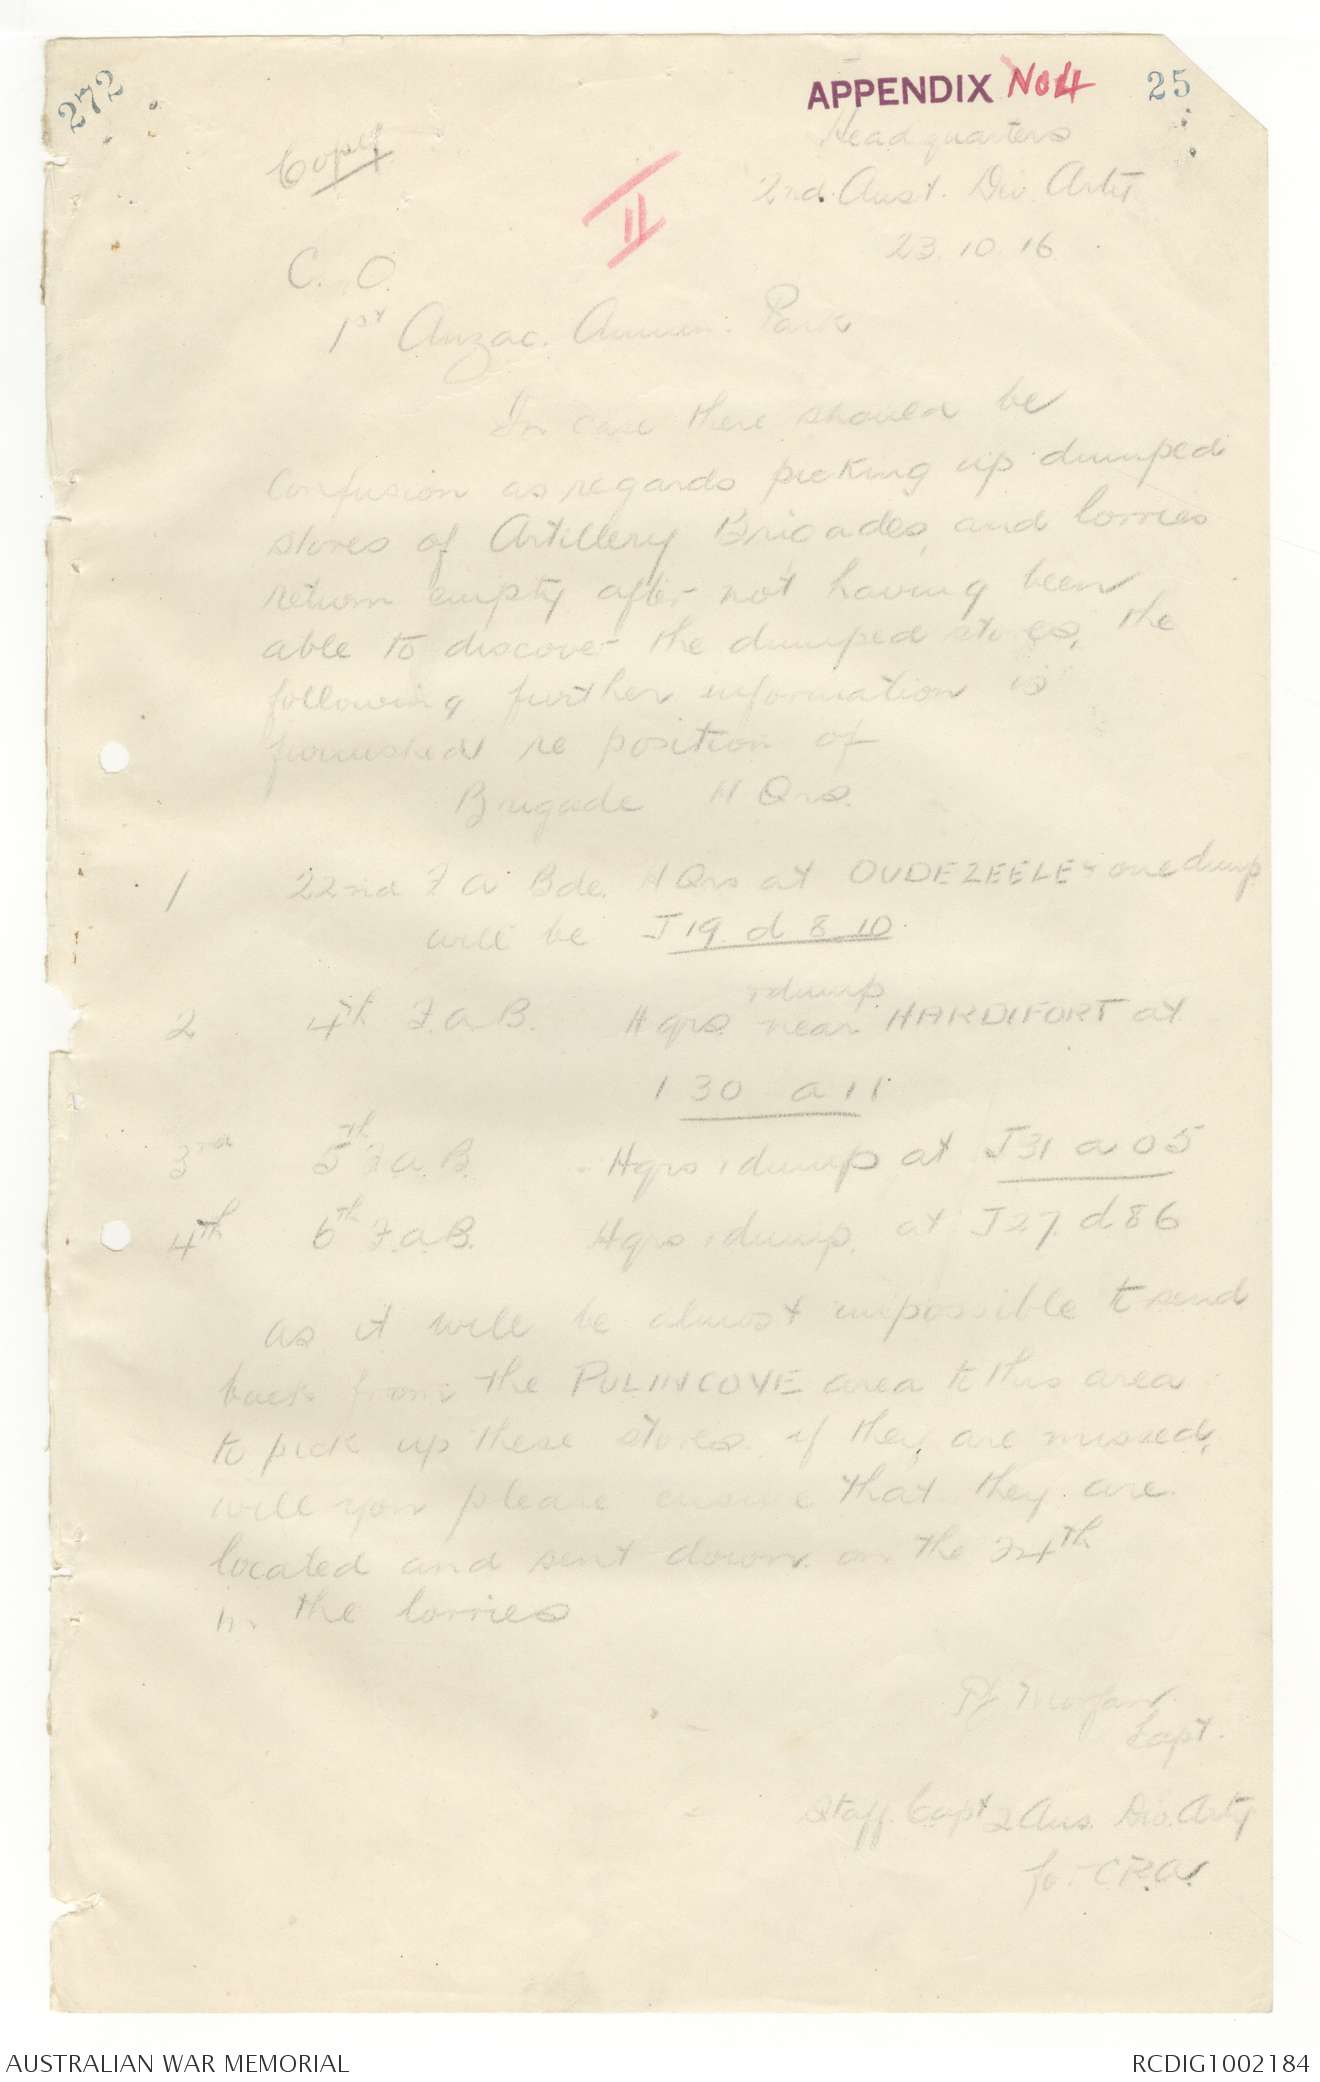 272
APPENDIX No 4
25
Copy
II
Headquarters
2nd. Aust. Div Arty
23.10.16
C. O.
1st Anzac. Ammn. Park
In case there should be
confusion as regards picking up dumped
stores of Artillery Brigades, and lorries
return empty after not having been
able to discover the dumped stores, the
following further information is
furnished re position of
Brigade H Qrs.
1 22nd F A Bde. H Qrs at OUDEZEELE & one dump
will be J 19 d 8 10.
2 4th F.A.B. Hqrs. & dump near HARDIFORT at
I 30 a 11
3rd 5th F.A.B. - Hqrs & dump at J 31 a 05
4th 6th F.A.B. Hqrs & dump. at J 27. d 86
as it will be almost impossible to send
back from the PULINCOVE area to this area
to pick up these stores if they are missed,
will you please ensure that they are
located and sent down on the 24th
in the lorries
Capt.
Staff Capt 2 Aus. Div. Arty
for C.R.A.
AUSTRALIAN WAR MEMORIAL
RCDIG1002184